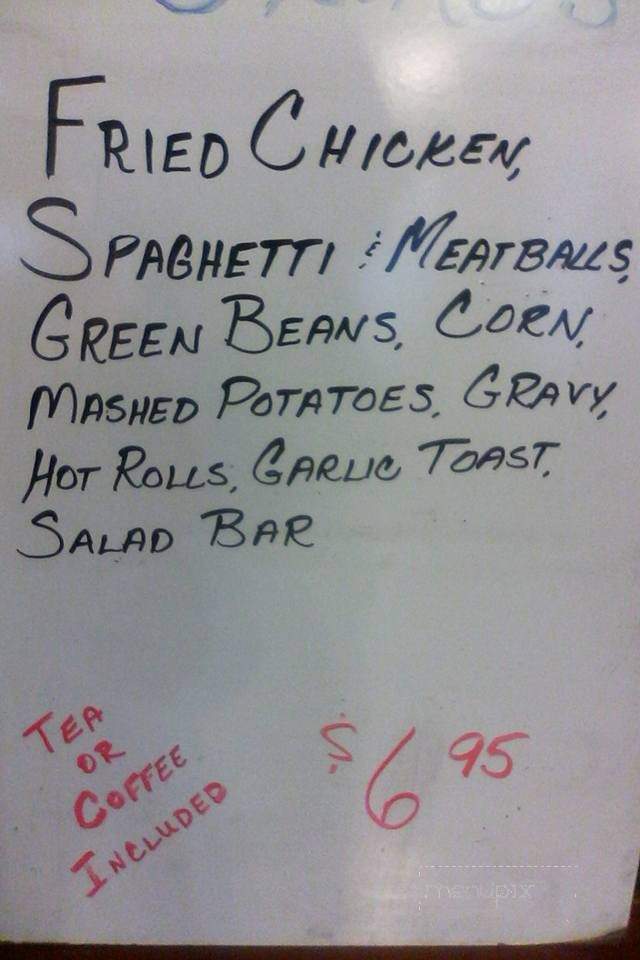 FRIED CHICKEN,
SPAGHETTI & MEATBALLS,
GREEN BEANS, CORN,
MASHED POTATOES, GRAVY,
HOT ROLLS, GARLIC TOAST,
SALAD BAR
TEA
OR
COFFEE
INCLUDED
$6 95
menupix